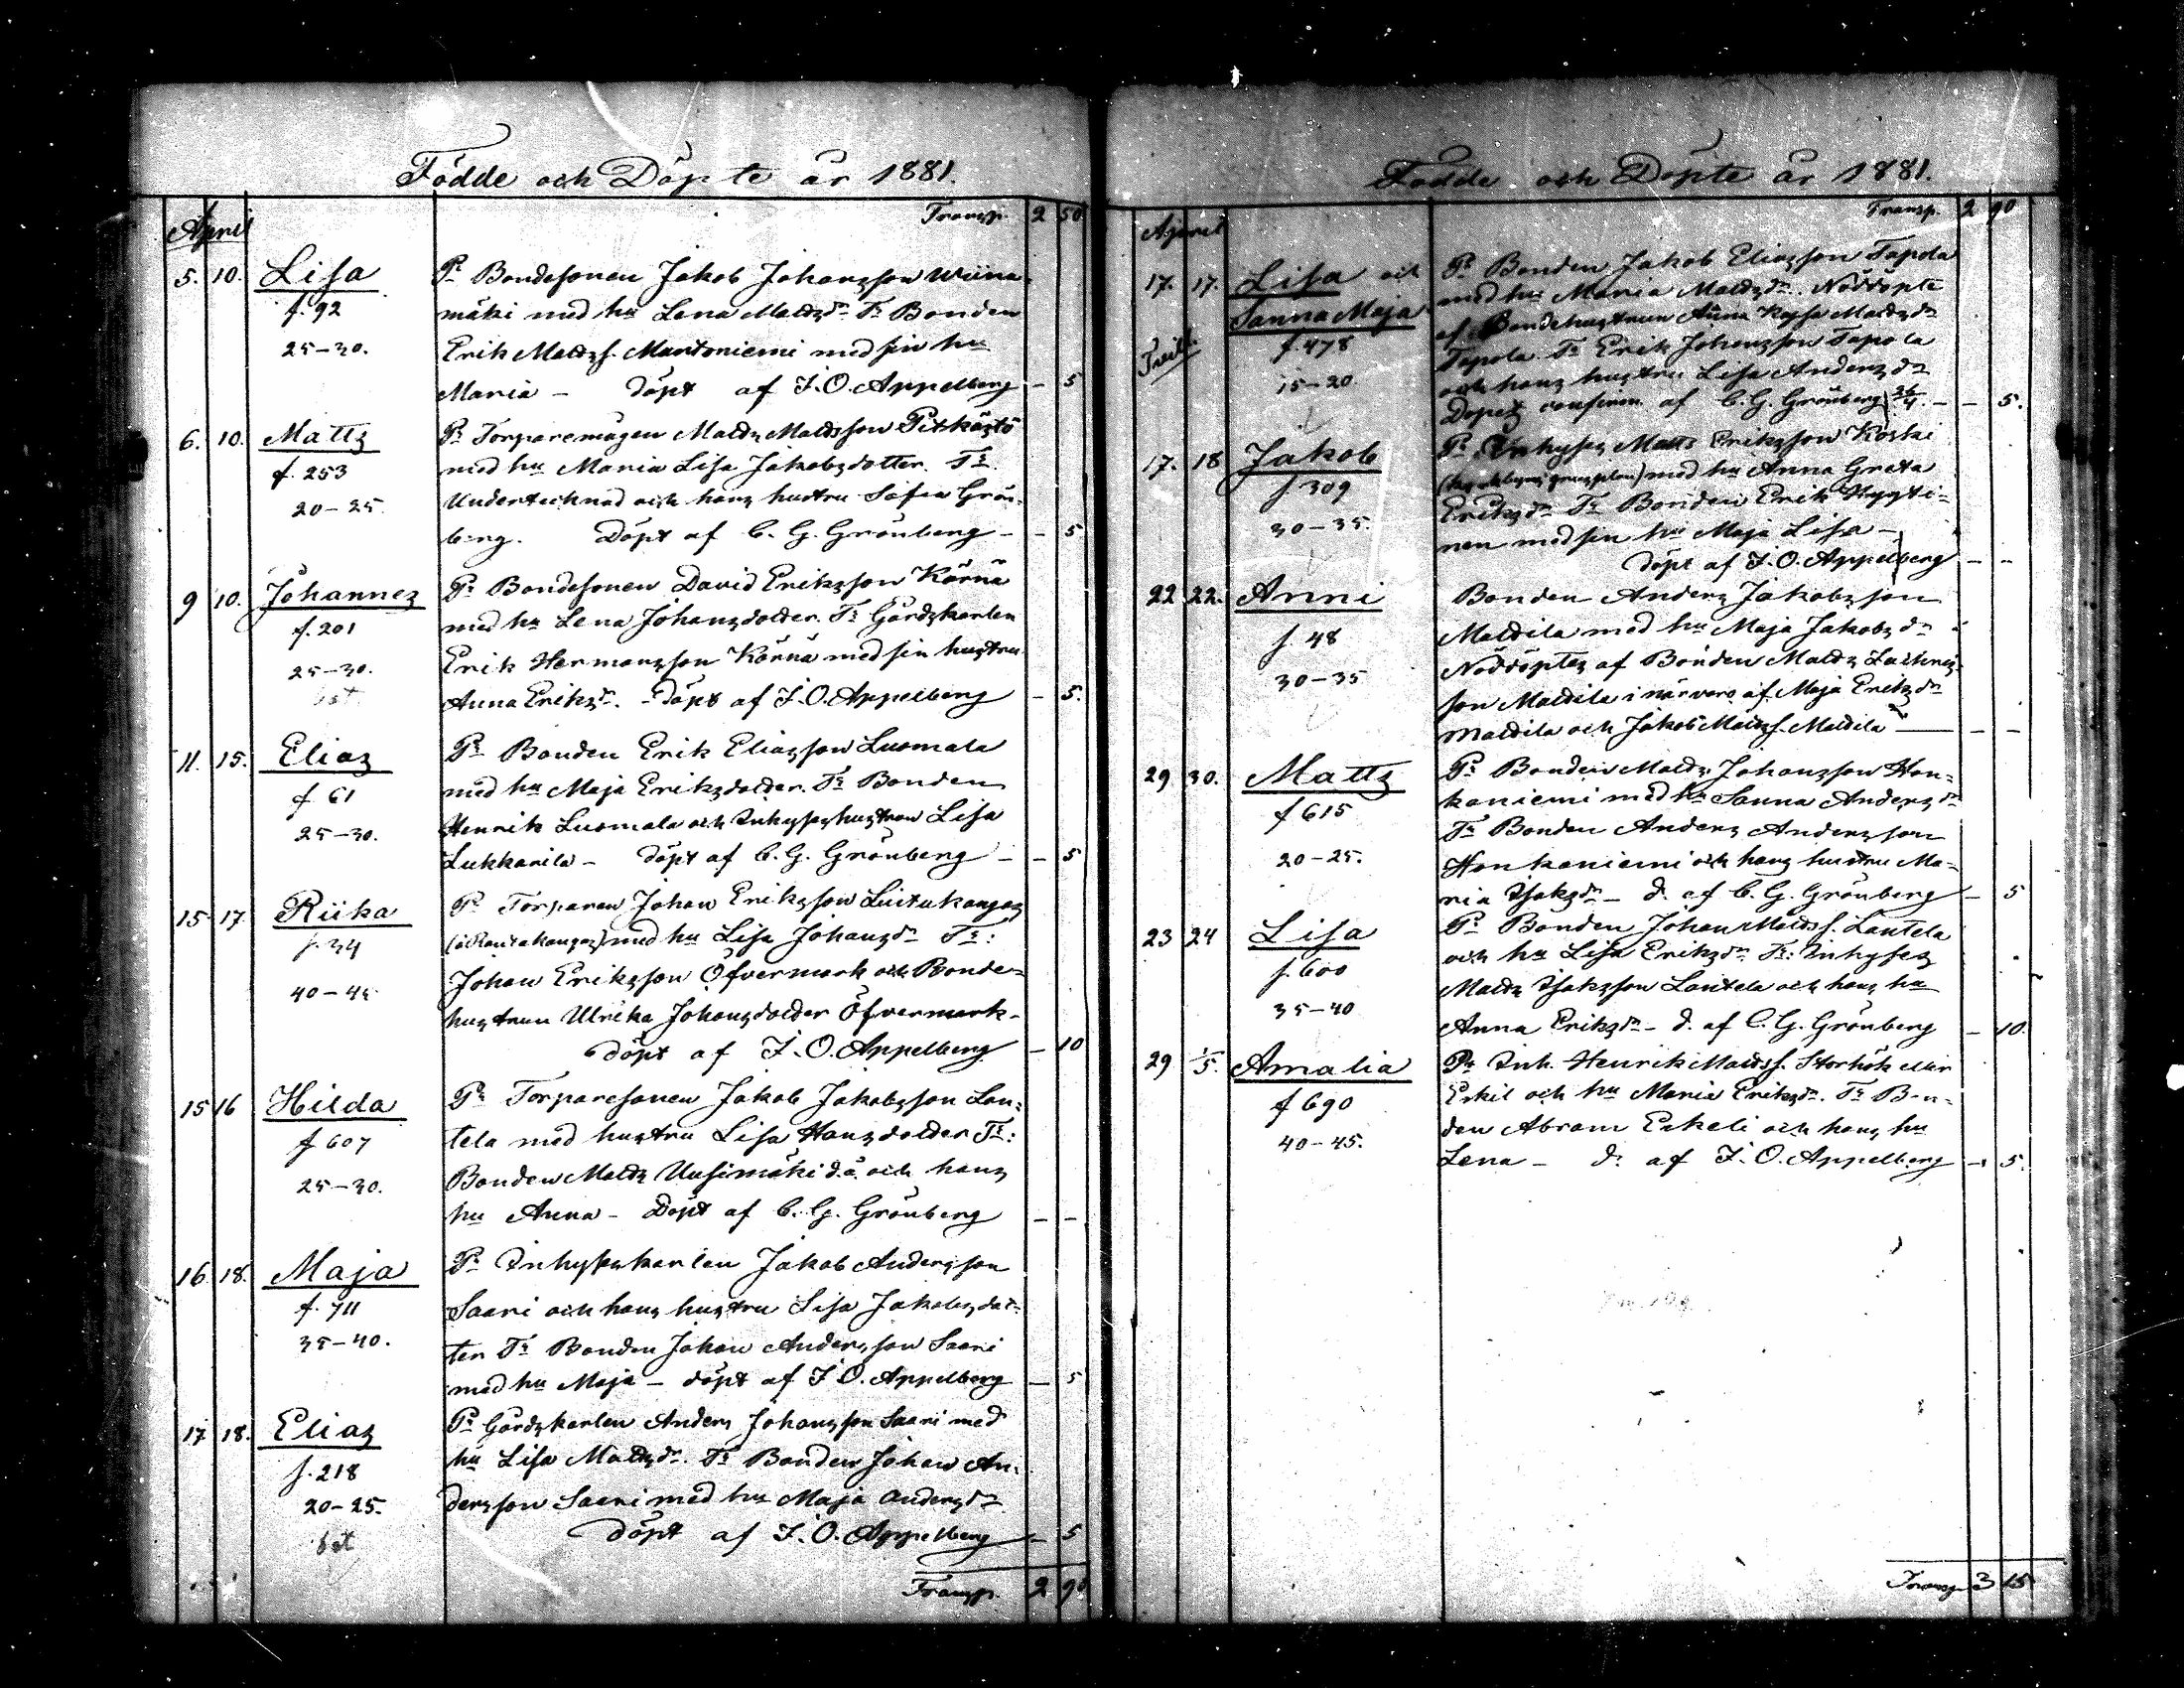 Födde och Döpte år 1881.
April
Transp. 2 50
5. 10. Lisa
Pr Bondesonen Jakob Johansson Wiina-
f. 92
mäki med hu Lena Mattsdr Tr Bonden
25–30.
Erik Mattss. Mantoniemi med sin hu
Maria – döpt af J. O. Appelberg – 5
6. 10. Matts
Pr Torparemågen Matts Mattsson Pitkäjtö
f. 253
med hu Maria Lisa Jakobsdotter. Tr
20–25.
Undertecknad och hans hustru Sofia Grön-
berg. Döpt af C. G. Grönberg – – 5
9 10. Johannes
Pr Bondesonen David Eriksson Körnä
f. 201
med hu Lena Johansdotter. Tr Gårdskarlen
25–30.
Erik Hermansson Körnä med sin hustru
Anna Eriksdr. – Döpt af J. O. Appelberg – 5.
11. 15. Elias
Pr Bonden Erik Eliasson Luomala
f. 61
med hu Maja Eriksdotter. Tr Bonden
25–30.
Henrik Luomala och Inhyseshustrun Lisa
Lukkarila – döpt af C. G. Grönberg – – 5
15 17. Riika
Pr Torparen Johan Eriksson Luitukangas
f. 34
med hu Lisa Johansdr Tr:
40–45
Johan Eriksson Öfvermark och Bonde-
hustrun Ulrika Johansdotter Öfvermark –
döpt af J. O. Appelberg – 10
15 16 Hilda
Pr Torparesonen Jakob Jakobsson Lan-
f. 607
tela med hustru Lisa Hansdotter Tr:
25–30.
Bonden Matts Uusimäki d.ä. och hans
hu Anna – Döpt af C. G. Grönberg – –
16. 18. Maja
Pr Inhyseskarlen Jakob Andersson
f. 711
Saari och hans hustru Lisa Jakobsdot-
35–40.
ter Tr Bonden Johan Andersson Saari
med hu Maja – döpt af J. O. Appelberg – 5
17 18. Elias
Pr Gårdskarlen Anders Johansson Saari med
f. 218
hu Lisa Mattsdr. Tr Bonden Johan An-
20–25.
dersson Saari med hu Maja Andersdr
döpt af J. O. Appelberg – 5
Transp. 2 90
Födde och Döpte år 1881.
April
Transp. 2 90
17. 17. Lisa och
Pr Bonden Jakob Eliasson Tapola
Sanna Maja
med hu Maria Mattsdr. Nöddöpte
af Bondehustrun Anna Kajsa Mattsdr
f. 478
Tapola. Tr Erik Johansson Tapola
15–20
och hans hustru Lisa Andersdr
Dopet confirm. af C. G. Grönberg 26/4. – – 5.
17. 18 Jakob
Pr Inhyses Matts Eriksson Koski
f. 309
med hu Anna Greta
30–35.
Eriksdr Tr Bonden Erik Hyyti-
nen med sin hu Maja Lisa –
döpt af J. O. Appelberg – –
22 22. Anni
Bonden Anders Jakobsson
f. 48
Mattila med hu Maja Jakobsdr
30–35
Nöddöptes af Bonden Matts
son Mattila i närvaro af Maja Eriksdr
Mattila och Jakob Mattss. Mattila – – –
29 30. Matts
Pr Bonden Matts Johansson Hon-
f 615
kaniemi med hu Sanna Andersdr
20–25.
Tr Bonden Anders Andersson
Honkaniemi och hans hustru Ma-
ria Isaksdr – d. af C. G. Grönberg – 5
23 24 Lisa
Pr Bonden Johan Mattss. Lantela
f. 600
och hu Lisa Eriksdr Tr: Inhyses
35–40
Matts Isaksson Lantela och hans hu
Anna Eriksdr – d. af C. G. Grönberg – 10.
29 1/5. Amalia
Pr Inh. Henrik Mattss. Storhök eller
f 690
Eskil och hu Maria Eriksdr. Tr Bon-
40–45.
den Abram Eskeli och hans hu
Lena – d: af J. O. Appelberg – 5.
Transp. 3 15